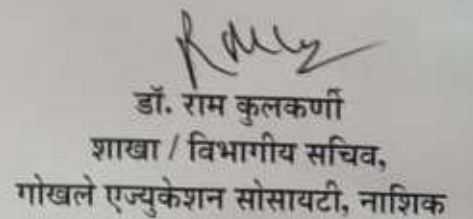 डॉ. राम कुलकर्णी
शाखा / विभागीय सचिव,
गोखले एज्युकेशन सोसायटी, नाशिक